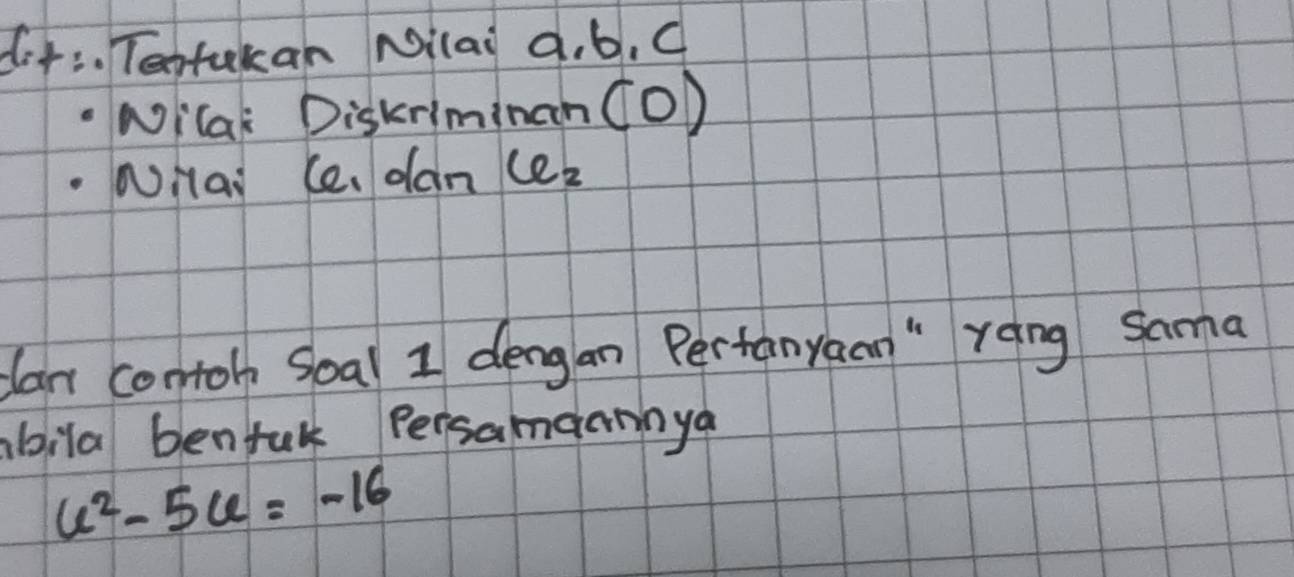 dit:. Tentukan Nilai a,b,c
• Nilai Diskriminan (D)
• Nilai x₁ dan x₂
dari contoh Soal 1 dengan Pertanyaan" yang sama
bila bentuk Persamaannya
x² - 5x = -16